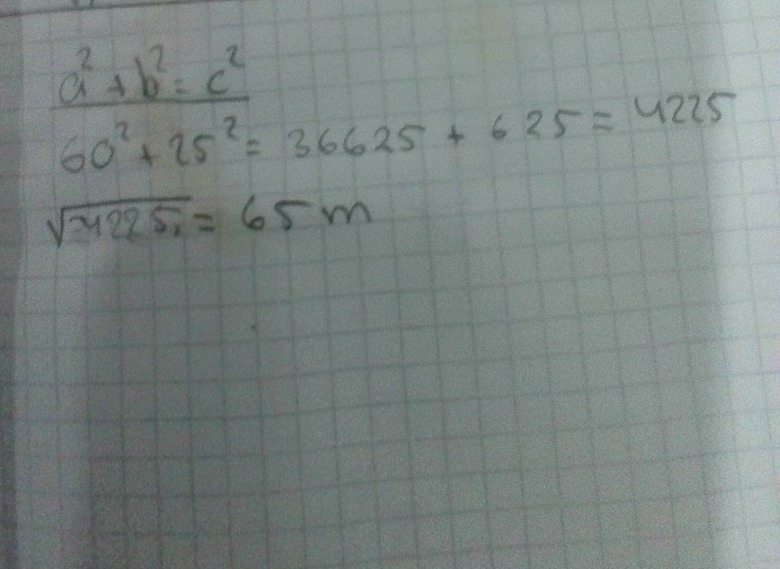 a² + b² = c²
60² + 25² = 36625 + 625 = 4225
√4225 = 65 m